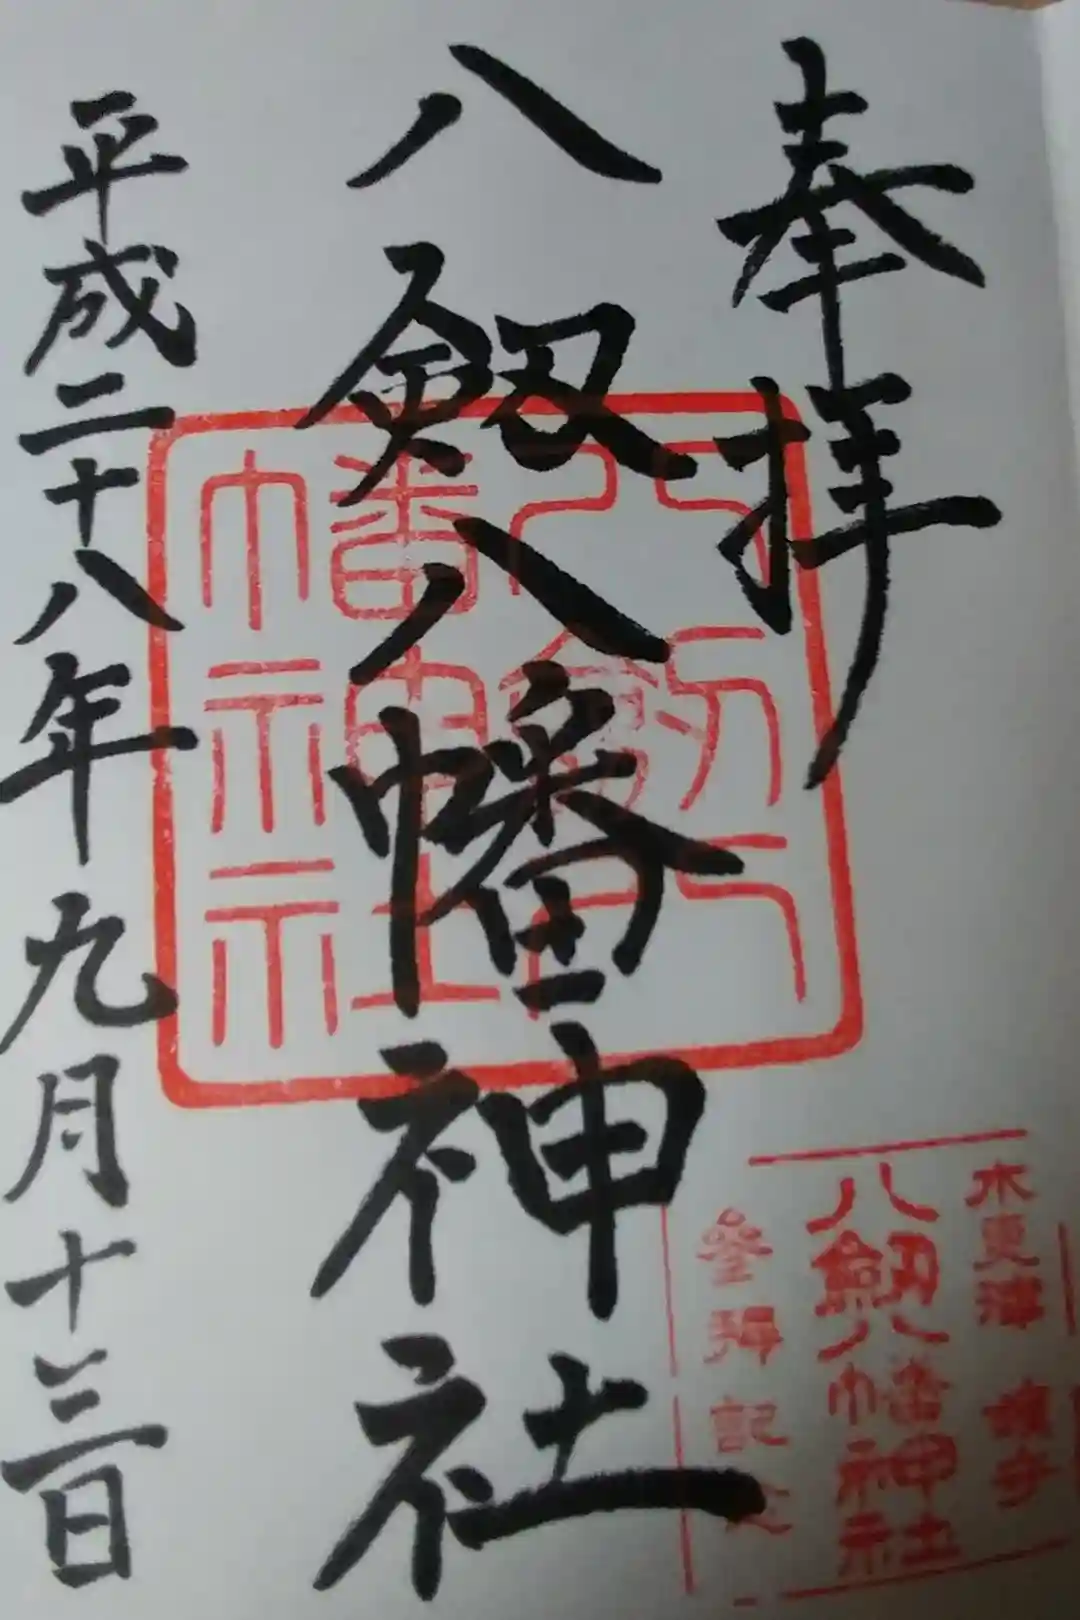 奉拝
八剱八幡神社
平成二十八年九月十三日
八剱八幡神社
木更津 鎮守
八剱八幡神社
参拝記念